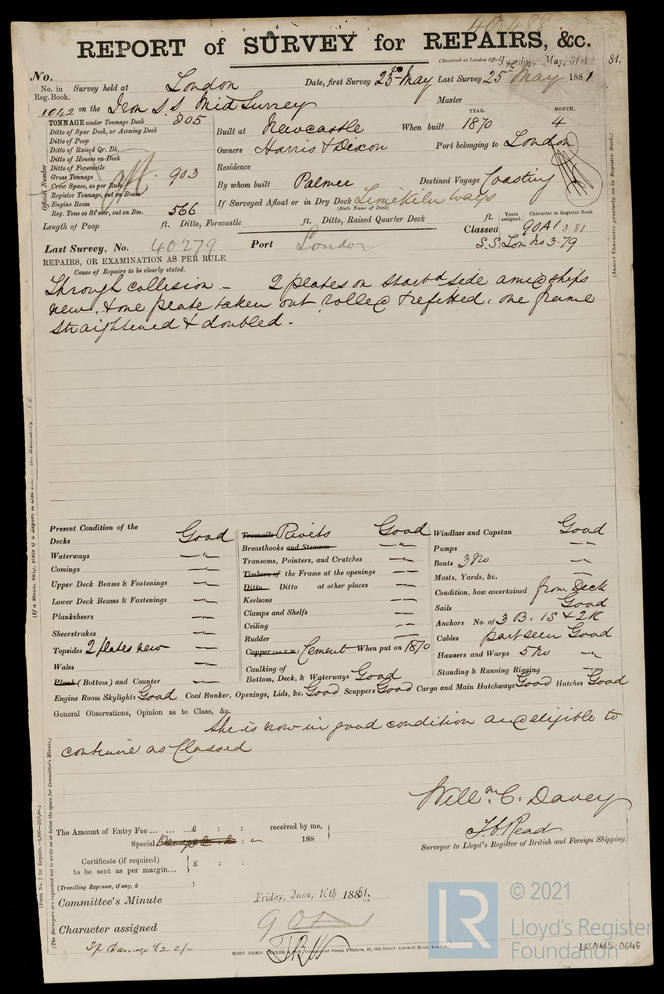 REPORT of SURVEY for REPAIRS, &c.
(Received at London Office Tuesday, May, 31st 81.
No.
No. in Reg. Book. Survey held at London Date, first Survey 25th May Last Survey 25th May 1881
1042 on the Iron S.S. Mid Surrey Master
TONNAGE under Tonnage Deck 805
Ditto of Spar Deck, or Awning Deck
Ditto of Poop
Ditto of Raised Qr. Dk.
Ditto of Houses on Deck
Ditto of Forecastle
Gross Tonnage 903
Crew Space, as per Rule
Register Tonnage, cut on Beam
Engine Room
Reg. Tons as St'mr, cut on Bm. 566
Official Number
Built at Newcastle When built YEAR. 1870 MONTH. 4
Owners Harris & Dixon Port belonging to London
Residence
By whom built Palmer Destined Voyage Coasting
If Surveyed Afloat or in Dry Dock Limekiln ways
(State Name of Dock)
Length of Poop ft. Ditto, Forecastle ft. Ditto, Raised Quarter Deck ft.
Years assigned. Character in Register Book.
Classed 90A1 3.81
S.S. Lon No 3.79
Last Survey, No. 40279 Port London
REPAIRS, OR EXAMINATION AS PER RULE
Cause of Repairs to be clearly stated.
Through collision — 2 plates on Starbd side amidships
new, & one plate taken out rolled & refitted, one frame
straightened & doubled.
Present Condition of the
Decks Good
Waterways "
Comings "
Upper Deck Beams & Fastenings "
Lower Deck Beams & Fastenings "
Planksheers "
Sheerstrakes "
Topsides 2 plates new "
Wales "
Plank (Bottom) and Counter "
Treenails Rivets Good
Breasthooks and Stemson "
Transoms, Pointers, and Crutches "
Timbers of the Frame at the openings "
Ditto Ditto at other places "
Keelsons "
Clamps and Shelfs "
Ceiling "
Rudder "
Copper (or Y.M.) Cement When put on 1870
Caulking of Bottom, Deck, & Waterways Good
Windlass and Capstan Good
Pumps "
Boats 3 No "
Masts, Yards, &c. "
Condition, how ascertained from Deck
Sails Good
Anchors No. of 3 B. 1 S & 2 K
Cables part seen Good
Hawsers and Warps 5 No "
Standing & Running Rigging "
Engine Room Skylights Good Coal Bunker, Openings, Lids, &c. Good Scuppers Good Cargo and Main Hatchways Good Hatches Good
General Observations, Opinion as to Class, &c.
She is now in good condition and eligible to
continue as Classed
Willm C. Davey
T.W. Read
Surveyor to Lloyd's Register of British and Foreign Shipping.
The Amount of Entry Fee ... ... £ : : received by me,
Special : : 188
Certificate (if required) to be sent as per margin... £ : :
(Travelling Expenses, if any, £ )
Committee's Minute Friday, June, 10th 1881.
Character assigned 90A1
Sp Damage £2.2/-
© 2021
LR
Lloyd's Register
Foundation